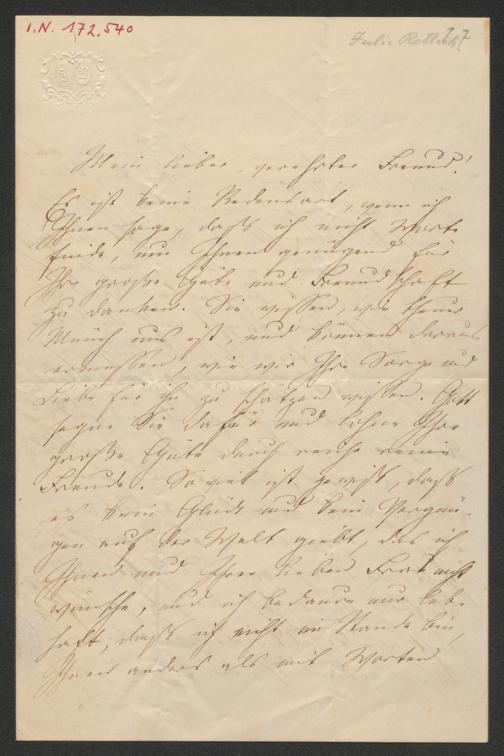 I.N. 172.540
Julie Rettich
Mein lieber, verehrter Freund!
Es ist keine Redensart, wenn ich
Ihnen sage, daß ich nicht Worte
finde, um Ihnen genügend für
Ihre große Güte und Freundschaft
zu danken. Sie wissen, wie theuer
Münch uns ist, und können daraus
ermessen, wie wir Ihre Sorge und
Liebe für ihn zu schätzen wissen. Gott
segne Sie dafür und lohne Ihre
große Güte durch reiche reine
Freude. So viel ist gewiß, daß
es kein Glück und kein Vergnü-
gen auf der Welt giebt, das ich
Ihnen und Ihrer lieben Frau nicht
wünsche, und ich bedaure nur leb-
haft, daß ich nicht im Stande bin,
Ihnen anders als mit Worten